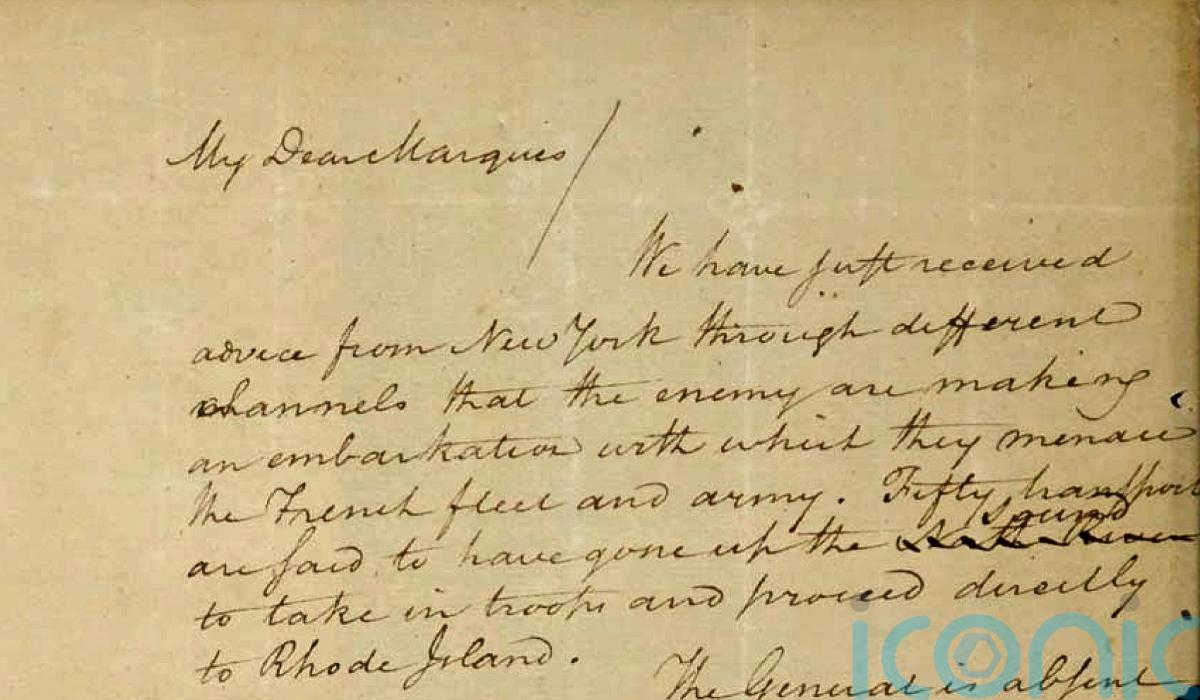 My Dear Marquis /
We have just received
advice from New York through different
channels that the enemy are making
an embarkation with which they menace
the French fleet and army. Fifty transport
sound
are said to have gone up the North River
to take in troops and proceed directly
to Rhode Island.
The General is absent
iconic